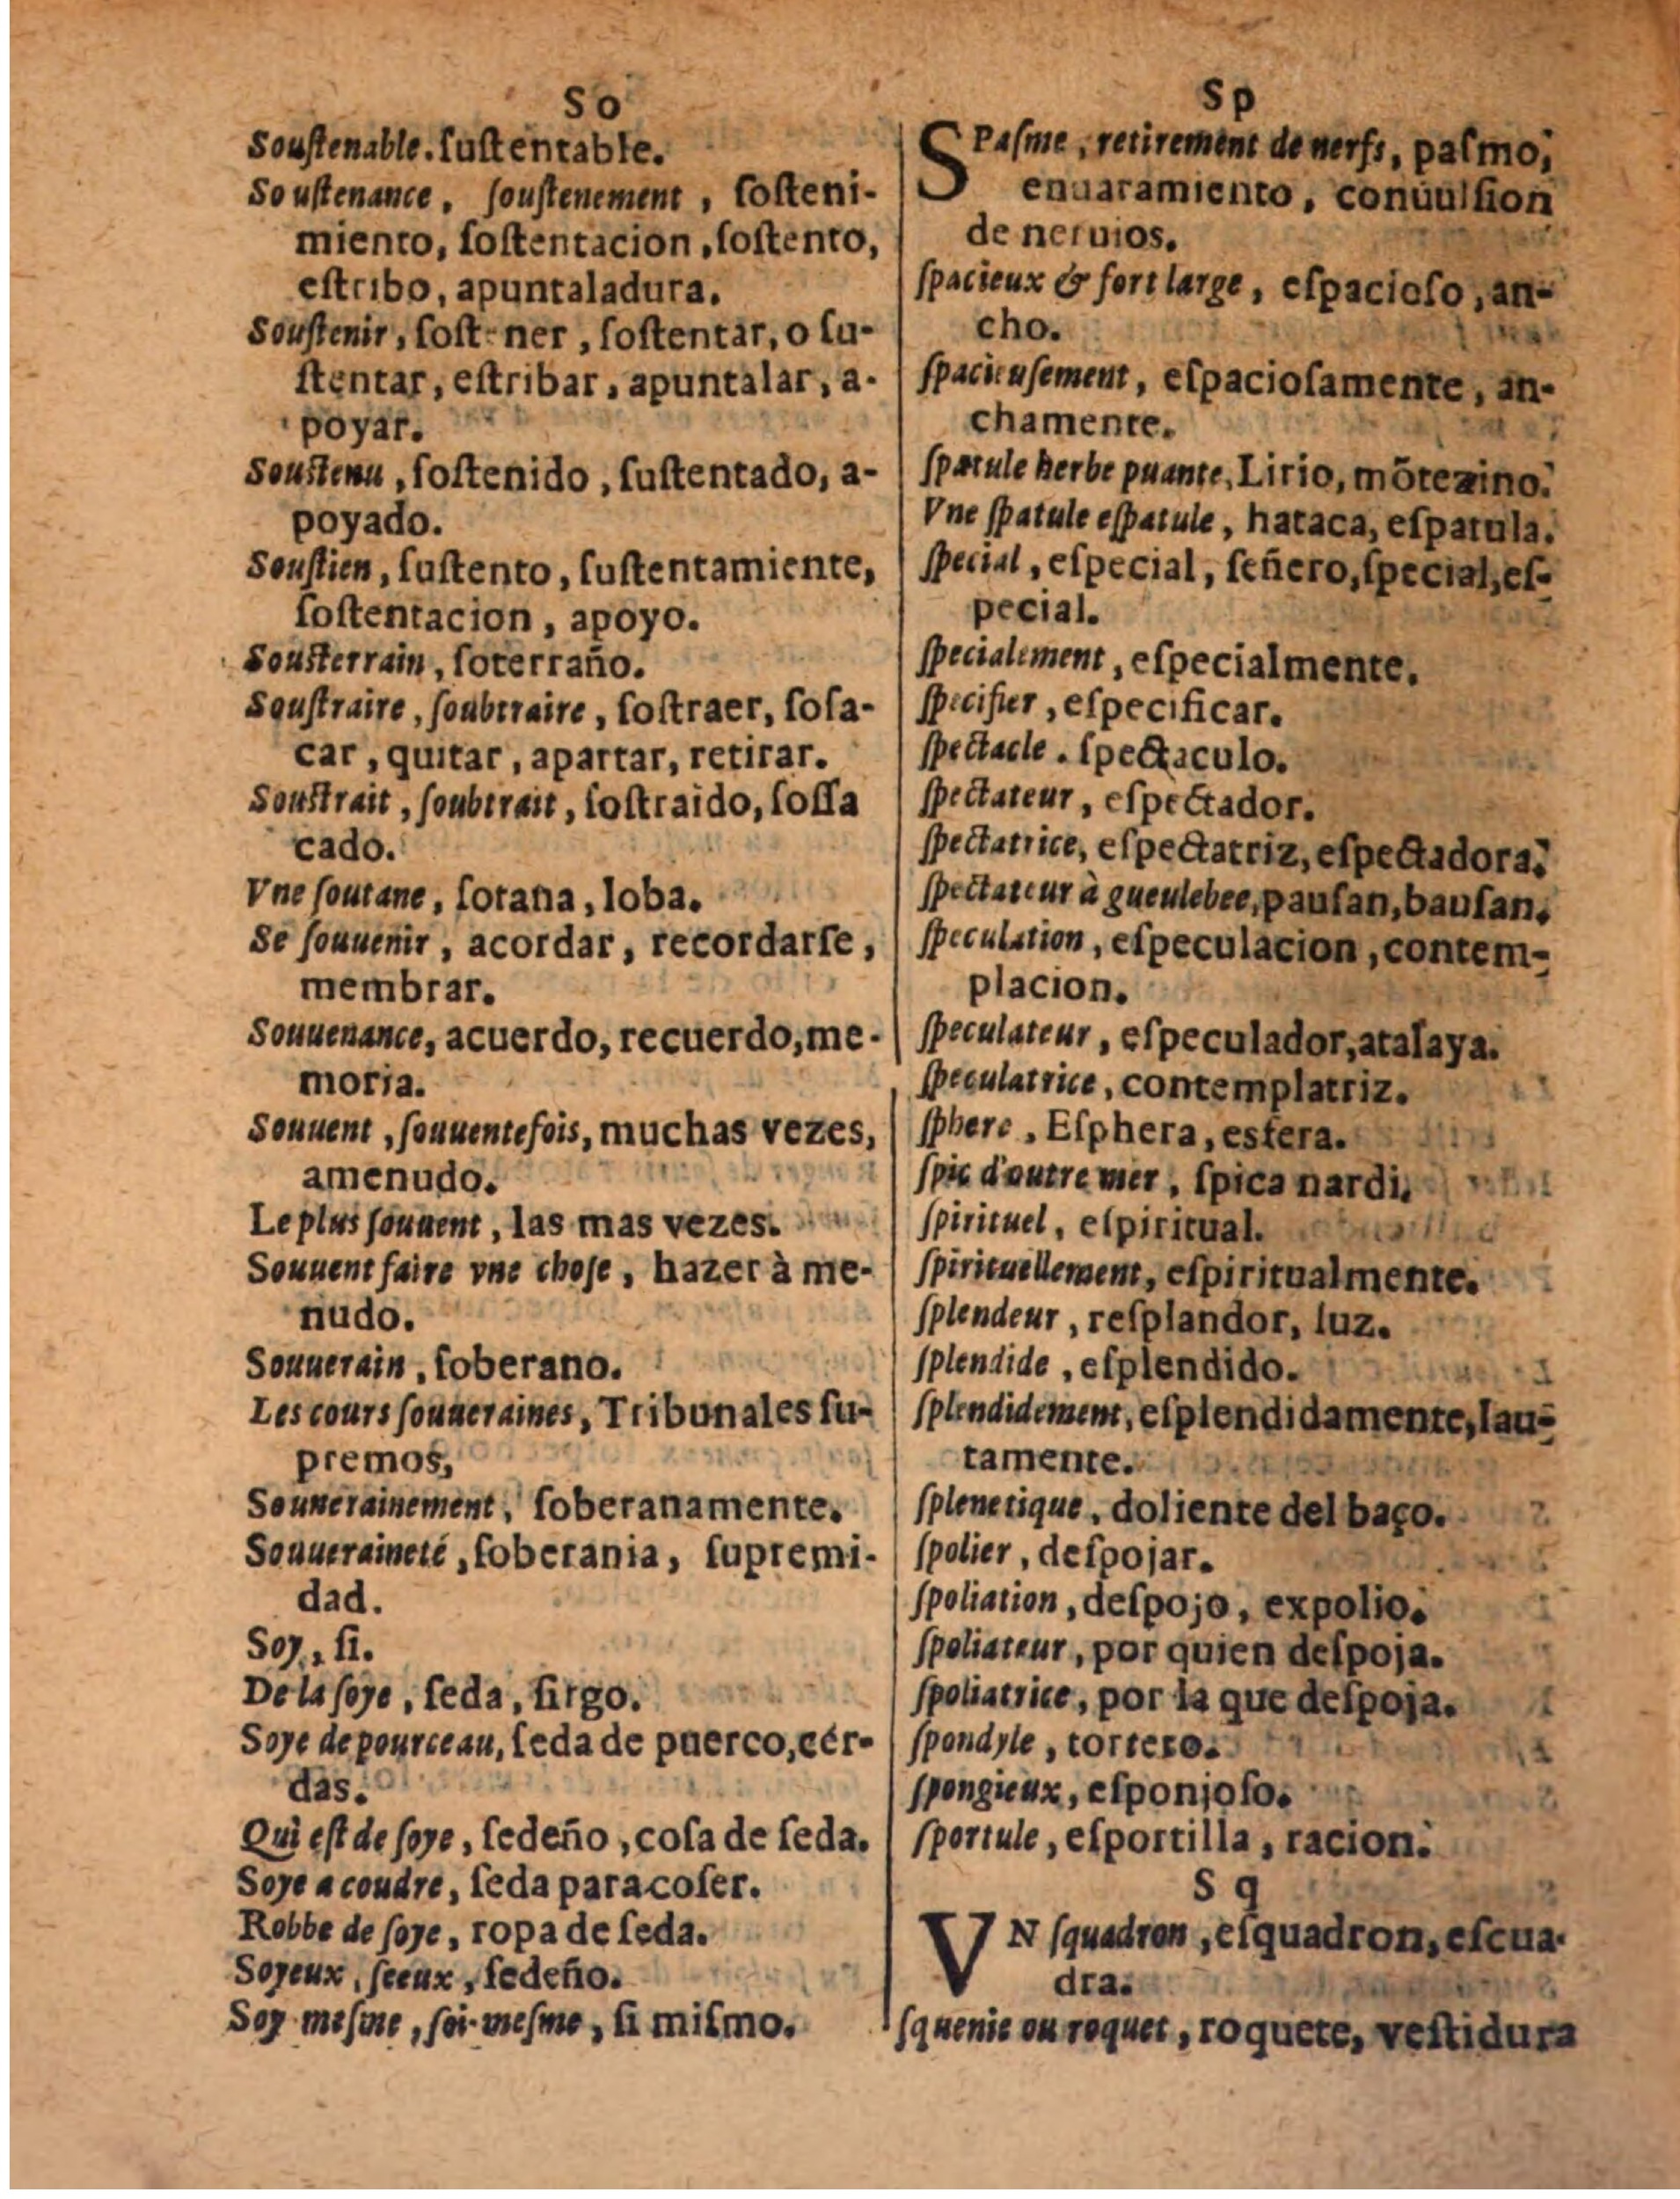 So
Souſtenable. ſuſtentable.
Souſtenance, ſouſtenement, ſoſteni-
miento, ſoſtentacion, ſoſtento,
eſtribo, apuntaladura.
Souſtenir, ſoſtener, ſoſtentar, o ſu-
ſtentar, eſtribar, apuntalar, a-
poyar.
Souſtenu, ſoſtenido, ſuſtentado, a-
poyado.
Souſtien, ſuſtento, ſuſtentamiente,
ſoſtentacion, apoyo.
Souſterrain, ſoterraño.
Souſtraire, ſoubtraire, ſoſtraer, ſoſa-
car, quitar, apartar, retirar.
Souſtrait, ſoubtrait, ſoſtraido, ſoſſa
cado.
Vne ſoutane, ſotana, loba.
Se ſouuenir, acordar, recordarſe,
membrar.
Souuenance, acuerdo, recuerdo, me-
moria.
Souuent, ſouuentefois, muchas vezes,
amenudo.
Le plus ſouuent, las mas vezes.
Souuent faire vne choſe, hazer à me-
nudo.
Souuerain, ſoberano.
Les cours ſouueraines, Tribunales ſu-
premos,
Souuerainement, ſoberanamente.
Souueraineté, ſoberania, ſupremi-
dad.
Soy, ſi.
De la ſoye, ſeda, ſirgo.
Soye de pourceau, ſeda de puerco, cér-
das.
Qui eſt de ſoye, ſedeño, coſa de ſeda.
Soye a coudre, ſeda para coſer.
Robbe de ſoye, ropa de ſeda.
Soyeux, ſeeux, ſedeño.
Soy meſme, ſoi-meſme, ſi miſmo.
Sp
SPaſme, retirement de nerfs, paſmo,
enuaramiento, conuulſion
de neruios.
ſpacieux & fort large, eſpacioſo, an-
cho.
ſpacieuſement, eſpacioſamente, an-
chamente.
ſpatule herbe puante, Lirio, mõtezino.
Vne ſpatule eſpatule, hataca, eſpatula.
ſpecial, eſpecial, ſeñero, ſpecial, eſ-
pecial.
ſpecialement, eſpecialmente.
ſpecifier, eſpecificar.
ſpectacle. ſpectaculo.
ſpectateur, eſpectador.
ſpectatrice, eſpectatriz, eſpectadora.
ſpectateur à gueulebee, pauſan, bauſan.
ſpeculation, eſpeculacion, contem-
placion.
ſpeculateur, eſpeculador, atalaya.
ſpeculatrice, contemplatriz.
ſphere, Eſphera, esfera.
ſpic d'outre mer, ſpica nardi.
ſpirituel, eſpiritual.
ſpirituellement, eſpiritualmente.
ſplendeur, reſplandor, luz.
ſplendide, eſplendido.
ſplendidement, eſplendidamente, lau-
tamente.
ſplenetique, doliente del baço.
ſpolier, deſpojar.
ſpoliation, deſpojo, expolio.
ſpoliateur, por quien deſpoja.
ſpoliatrice, por la que deſpoja.
ſpondyle, tortero.
ſpongieux, eſponjoſo.
ſportule, eſportilla, racion.
Sq
VN ſquadron, eſquadron, eſcua-
dra.
ſquenie ou roquet, roquete, veſtidura